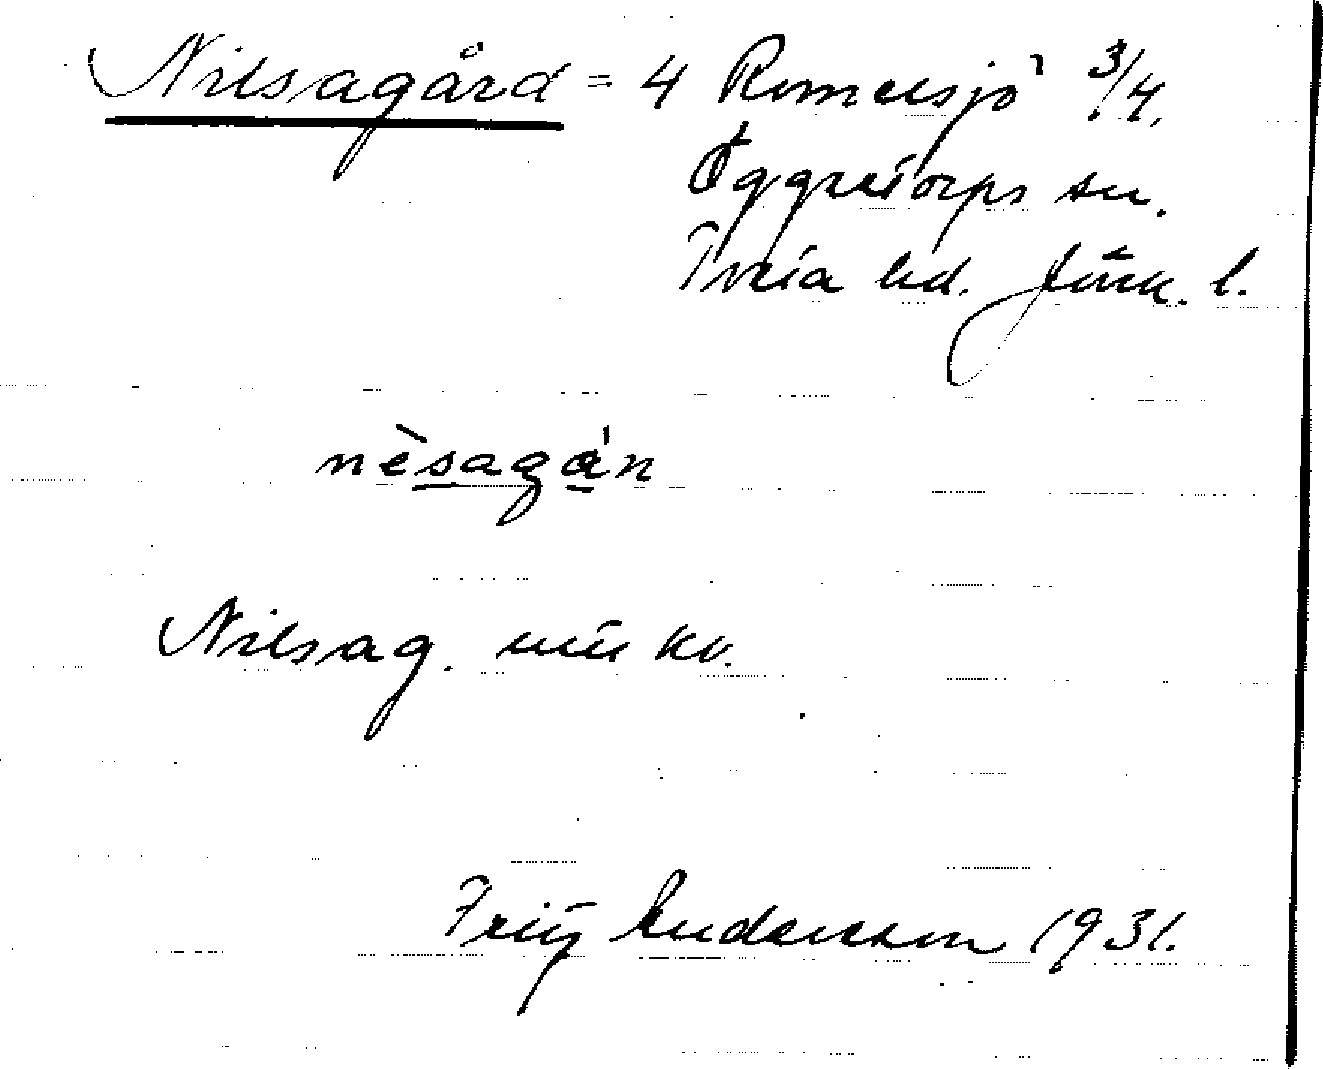 Nilsagård = 4 Romelsjö 3/4.
Öggestorps sn.
Tveta hd. Jönk. l.
nèsagán
Nilsag. till kv.
Fritz Anderson 1931.